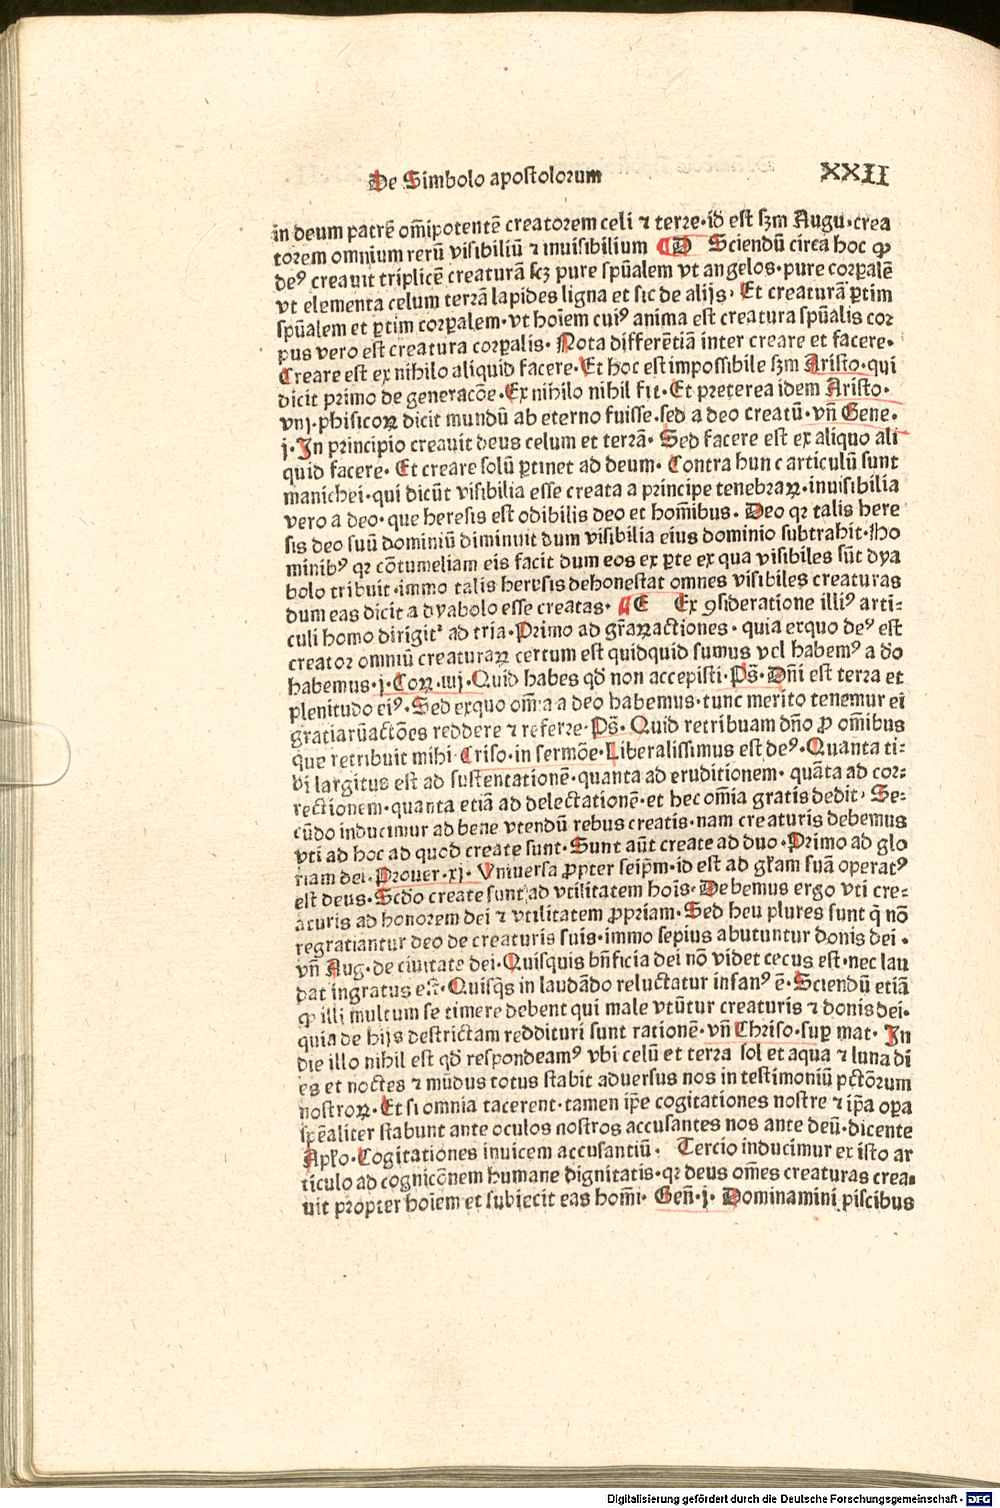 De Simbolo apostolorum XXII
in deum patrē om̄ipotentē creatorem celi ⁊ terre·id est ẜm Augu·crea
torem omnium rerū visibiliū ⁊ inuisibilium ¶ D Sciendū circa hoc ꝙ
deꝰ creauit triplicē creaturā scꝫ pure spūalem vt angelos·pure corꝑalē
vt elementa celum terrā lapides ligna et sic de alijs· Et creaturā ꝑtim
spūalem et ꝑtim corꝑalem·vt hoīem cuiꝰ anima est creatura spūalis cor
pus vero est creatura corꝑalis· Nota differētiā inter creare et facere·
Creare est ex nihilo aliquid facere·Et hoc est impossibile ẜm Aristo·qui
dicit primo de generacōe·Ex nihilo nihil fit·Et preterea idem Aristo·
viij·phisicoꝝ dicit mundū ab eterno fuisse·sed a deo creatū·vn̄ Gene·
j·In principio creauit deus celum et terrā· Sed facere est ex aliquo ali
quid facere· Et creare solū ꝑtinet ad deum· Contra hunc articulū sunt
manichei·qui dicūt visibilia esse creata a principe tenebraꝝ·inuisibilia
vero a deo·que heresis est odibilis deo et hom̄ibus· Deo qꝛ talis here
sis deo suū dominiū diminuit dum visibilia eius dominio subtrahit·Ho
minibꝰ qꝛ cōtumeliam eis facit dum eos ex ꝑte ex qua visibiles sūt dya
bolo tribuit·immo talis heresis dehonestat omnes visibiles creaturas
dum eas dicit a dyabolo esse creatas· ¶ E Ex ꝯsideratione illiꝰ arti-
culi homo dirigit᷑ ad tria·Primo ad gr̄aꝝactiones· quia exquo deꝰ est
creator omniū creaturaꝝ certum est quidquid sumus vel habemꝰ a do
habemus·j·Coꝝ·iiij·Quid habes qd̄ non accepisti·Ps̄·Dn̄i est terra et
plenitudo eiꝰ·Sed exquo om̄ia a deo habemus·tunc merito tenemur ei
gratiarūactōes reddere ⁊ referre·Ps̄·Quid retribuam dn̄o ꝓ om̄ibus
que retribuit mihi·Criso·in sermōe·Liberalissimus est deꝰ·Quanta ti-
bi largitus est ad sustentationē·quanta ad eruditionem· quāta ad cor-
rectionem·quanta etiā ad delectationē·et hec om̄ia gratis dedit· Se-
cūdo inducimur ad bene vtendū rebus creatis·nam creaturis debemus
vti ad hoc ad quod create sunt·Sunt aūt create ad duo·Primo ad glo
riam dei·Prouer·xj·Vniuersa ꝓpter seip̄m·id est ad gl̄am suā operatꝰ
est deus·Scd̄o create sunt ad vtilitatem hoīs·Debemus ergo vti cre-
aturis ad honorem dei ⁊ vtilitatem ꝓpriam·Sed heu plures sunt q̄ nō
regratiantur deo de creaturis suis·immo sepius abutuntur donis dei·
vn̄ Aug·de ciuitate dei·Quisquis bn̄ficia dei nō videt cecus est·nec lau
dat ingratus est·Quisq̄s in laudādo reluctatur insanꝰ ē·Sciendū etiā
ꝙ illi multum se timere debent qui male vtūtur creaturis ⁊ donis dei·
quia de hijs destrictam reddituri sunt rationē·vn̄ Chriso·suꝑ mat· In
die illo nihil est qd̄ respondeamꝰ vbi celū et terra sol et aqua ⁊ luna di
es et noctes ⁊ mūdus totus stabit aduersus nos in testimoniū pctōrum
nostroꝝ·Et si omnia tacerent·tamen ip̄e cogitationes nostre ⁊ ip̄a oꝑa
sp̄ealiter stabunt ante oculos nostros accusantes nos ante deū·dicente
Apl̄o·Cogitationes inuicem accusantiū· Tercio inducimur ex isto ar
ticulo ad cognicōnem humane dignitatis·qꝛ deus om̄es creaturas crea-
uit propter hoīem et subiecit eas hom̄i· Gen̄·j·Dominamini piscibus
Digitalisierung gefördert durch die Deutsche Forschungsgemeinschaft - DFG